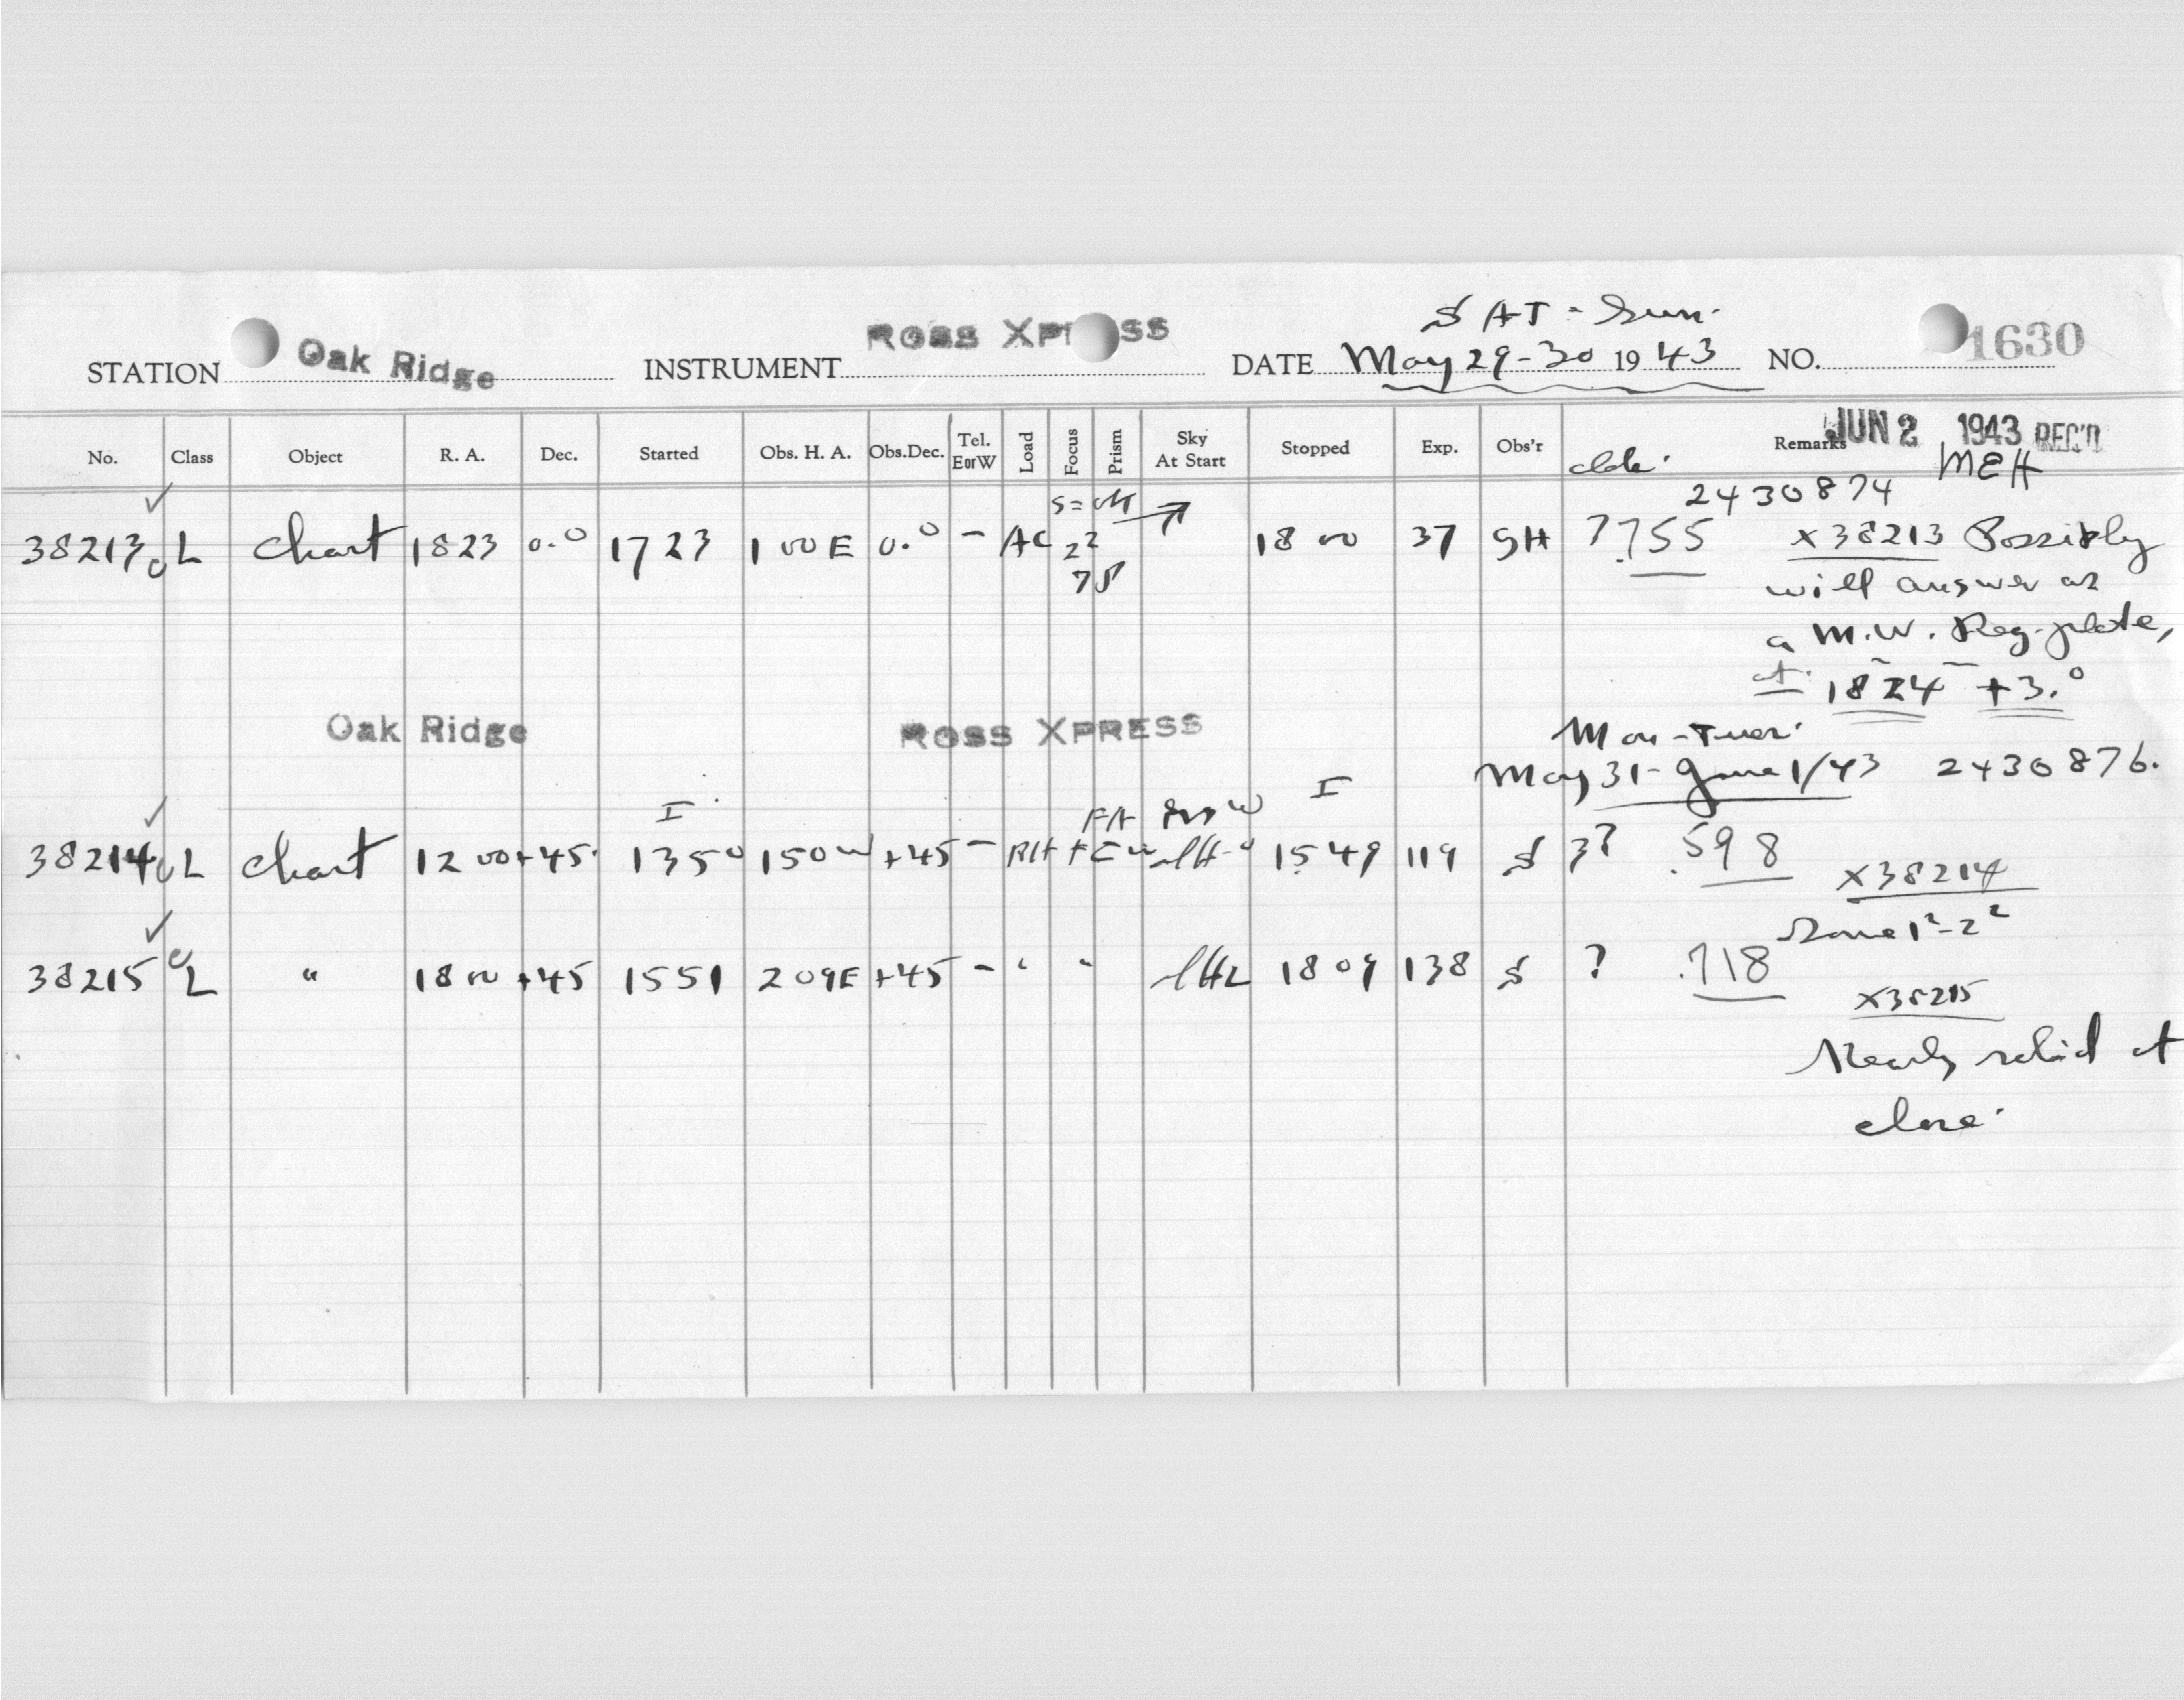 SAT - Sun.
STATION Oak Ridge INSTRUMENT ROSS XPRESS DATE May 29-30 1943 NO. 1630
JUN 2 1943 REC'D
No. Class Object R. A. Dec. Started Obs. H. A. Obs.Dec. Tel. EorW Load Focus Prism Sky At Start Stopped Exp. Obs'r Remarks
MEH
2430874
38213 L Chart 1823 0.° 1723 1 00 E 0.° - AC 22 18 00 37 SH ? .755 X38213 Possibly
78 will answer as
a M.W. Reg. plate,
at 1824 +3.°
Oak Ridge ROSS XPRESS
Mon-Tues.
May 31-June 1/43 2430876.
I I
38214 L Chart 12 00 +45 1350 150 W +45 - 1549 119 S 3? .598
X38214
Zone 1²-2²
38215 L " 18 00 +45 1551 209E +45 - " " 1809 138 S ? .718
X38215
Nearly solid at
close.